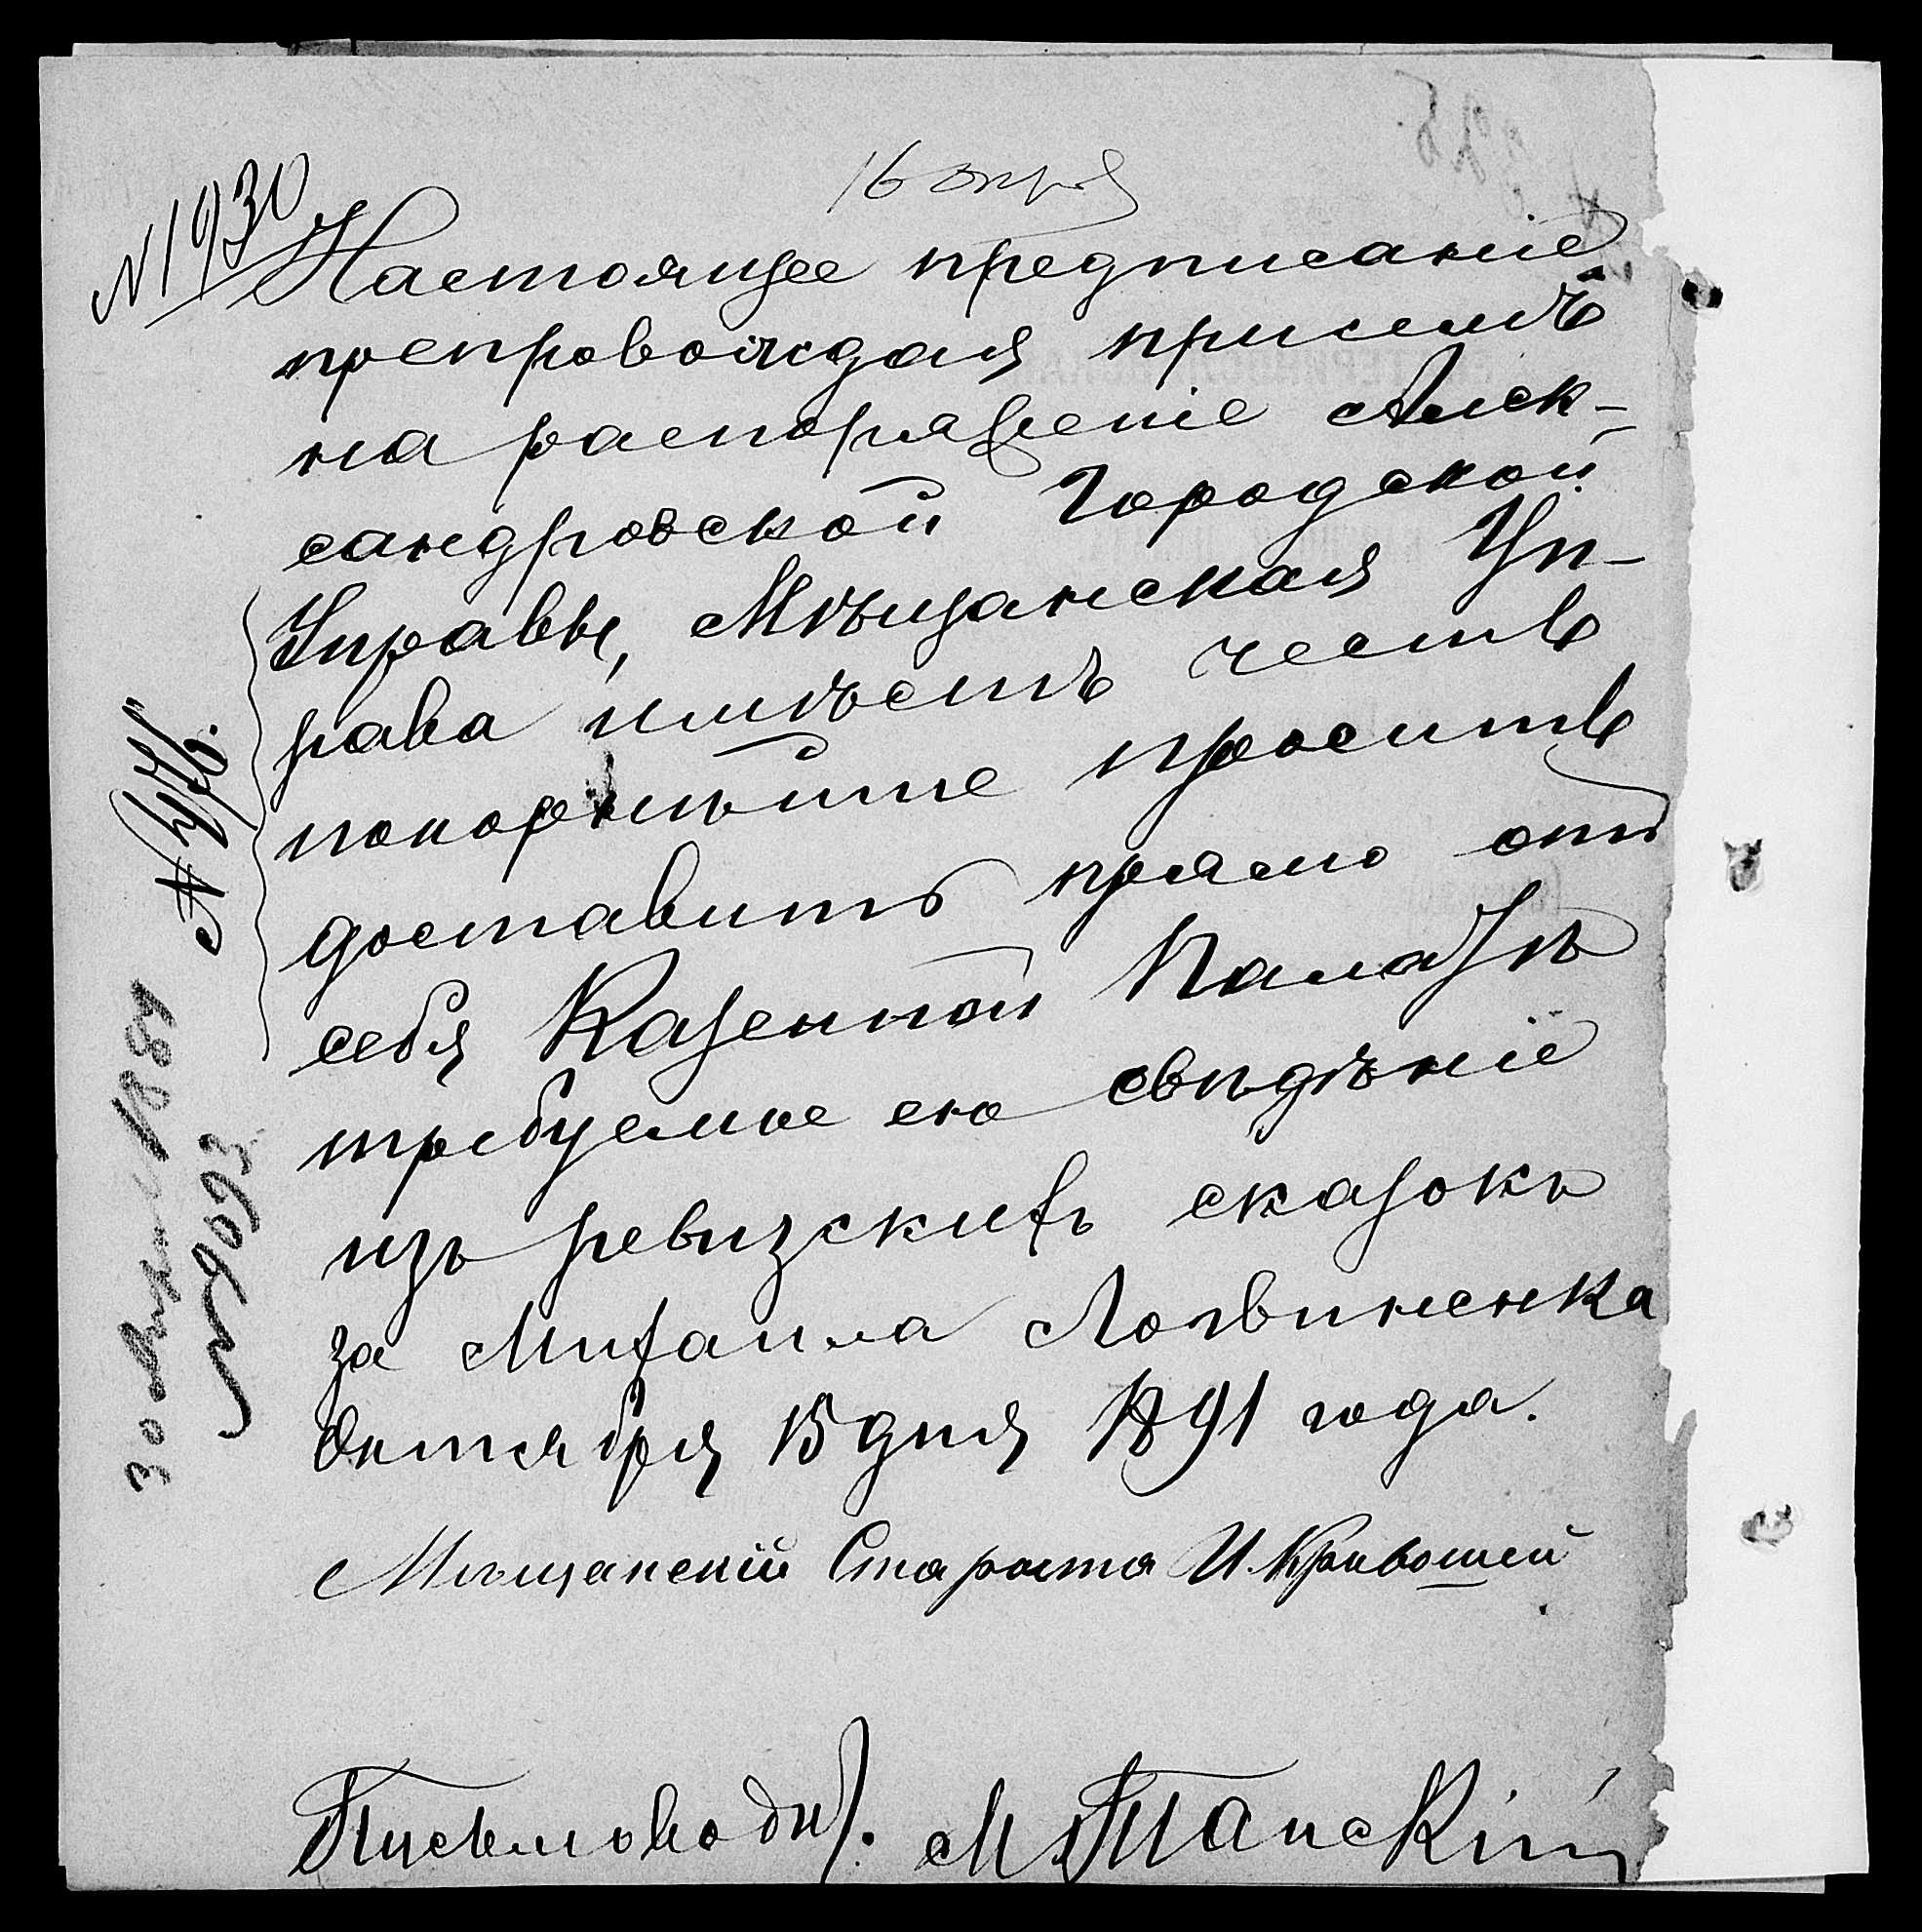 16 октя
№ 1930
Настоящее предписаніе
препровождая при семъ
на распоряженіе Алек-
сандровской Городской
Управы, Мѣщанская Уп-
рава имѣетъ честь
покорнѣйше просить
доставить прямо отъ
себя Казенной Палатѣ
требуемое ею свѣдѣніе
изъ ревизскихъ сказокъ
за Михаила Логвиненка
Октября 15 дня 1891 года.
Мѣщанскій Староста И. Кривошей
Письмоводит. М. Танскій
№
30 1881
№ 9093